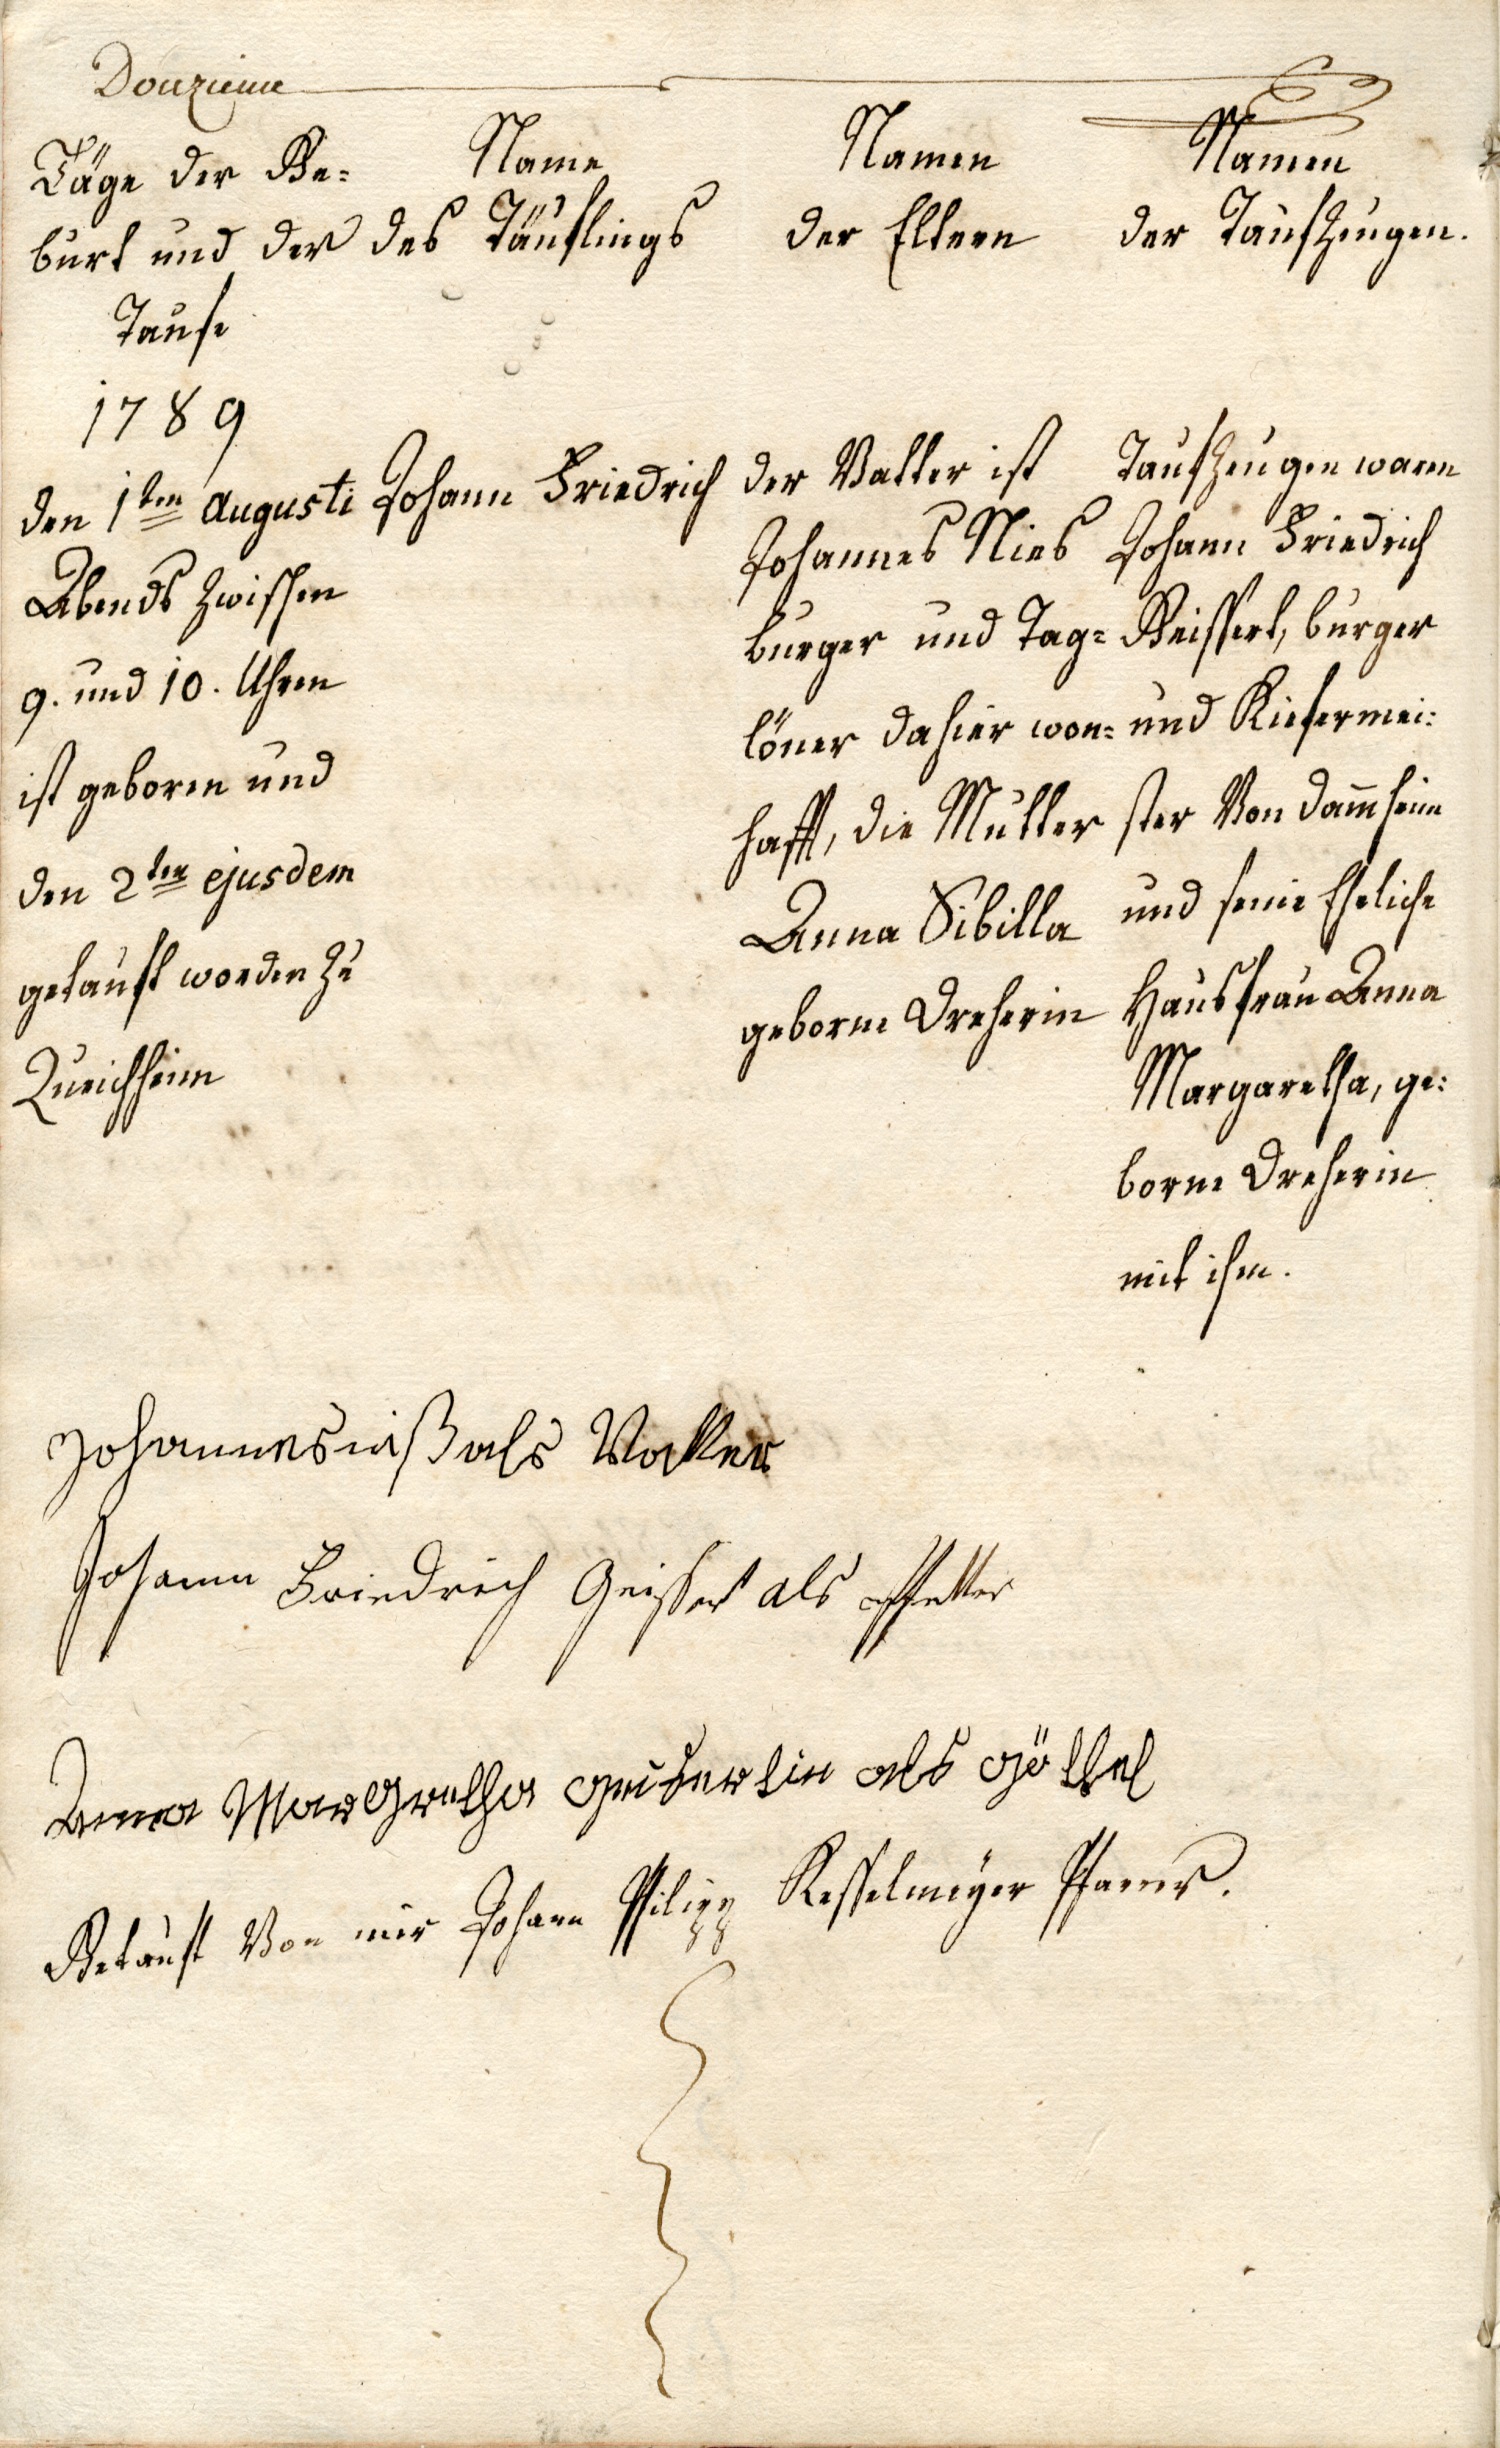 Douzieme
Täge der Ge=
burt und der
Taufe
1789
den 1ten Augusti
Abends zwischen
9. und 10. Uhren
ist geboren und
den 2ten ejusdem
getauft worden zu
Queichheim
Name
des Täuflings
Johann Friedrich
Namen
der Eltern
der Vatter ist
Johannes Nies
burger und Tag=
löner dahier won=
hafft, die Mutter
Anna Sibilla
geborne Dreherin
Namen
der Taufzeugen.
Taufzeugen waren
Johann Friedrich
Geissert, burger
und Kiefermei:
ster Von Dam̄heim
und seine Eheliche
Hausfrau Anna
Margaretha, ge:
borne Dreherin
mit ihm.
Johannes niß als Vatter
Johann Friedrich Geissert als Pfetter
Anna MarGretha als Göthel
Getauft Von mir Johann Philipp Kesselmeÿer Pfarrer.